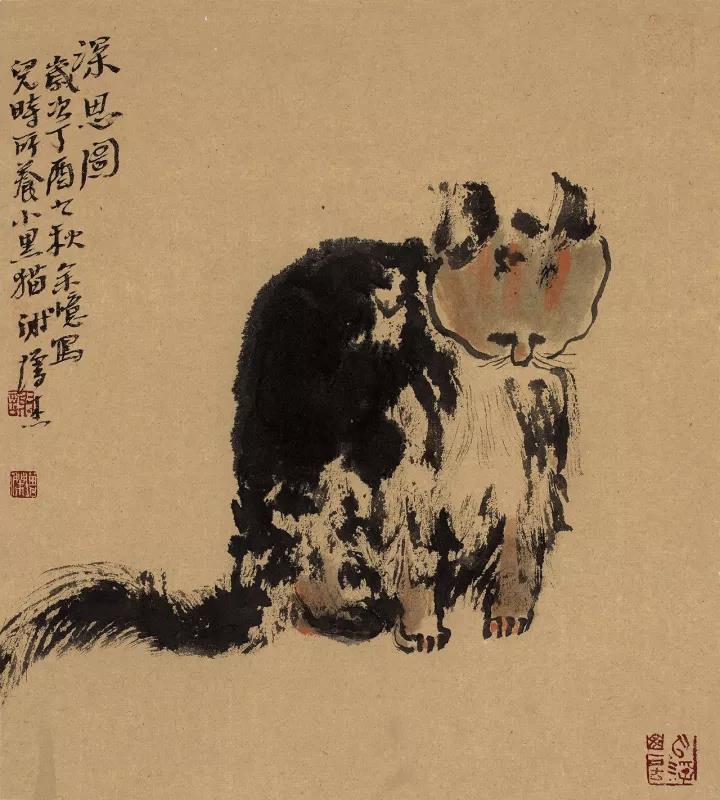 深思圖
歲次丁酉之秋余憶寫
兒時所養小黑猫 謝增杰